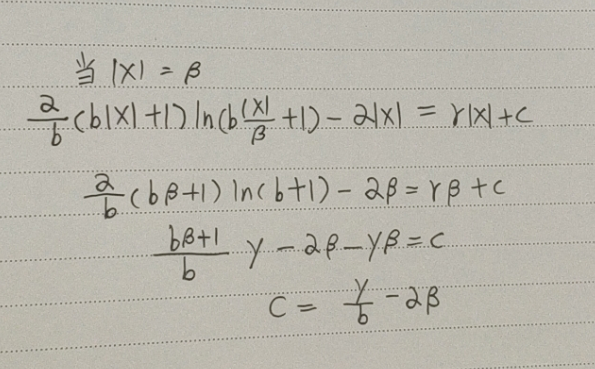 当 |x| = β
$\frac{a}{b}(b|x|+1)\ln(b\frac{|x|}{β}+1)-a|x| = γ|x|+C$
$\frac{a}{b}(bβ+1)\ln(b+1)-aβ = γβ+C$
$\frac{bβ+1}{b}γ-aβ-γβ=C$
$C = \frac{γ}{b}-aβ$